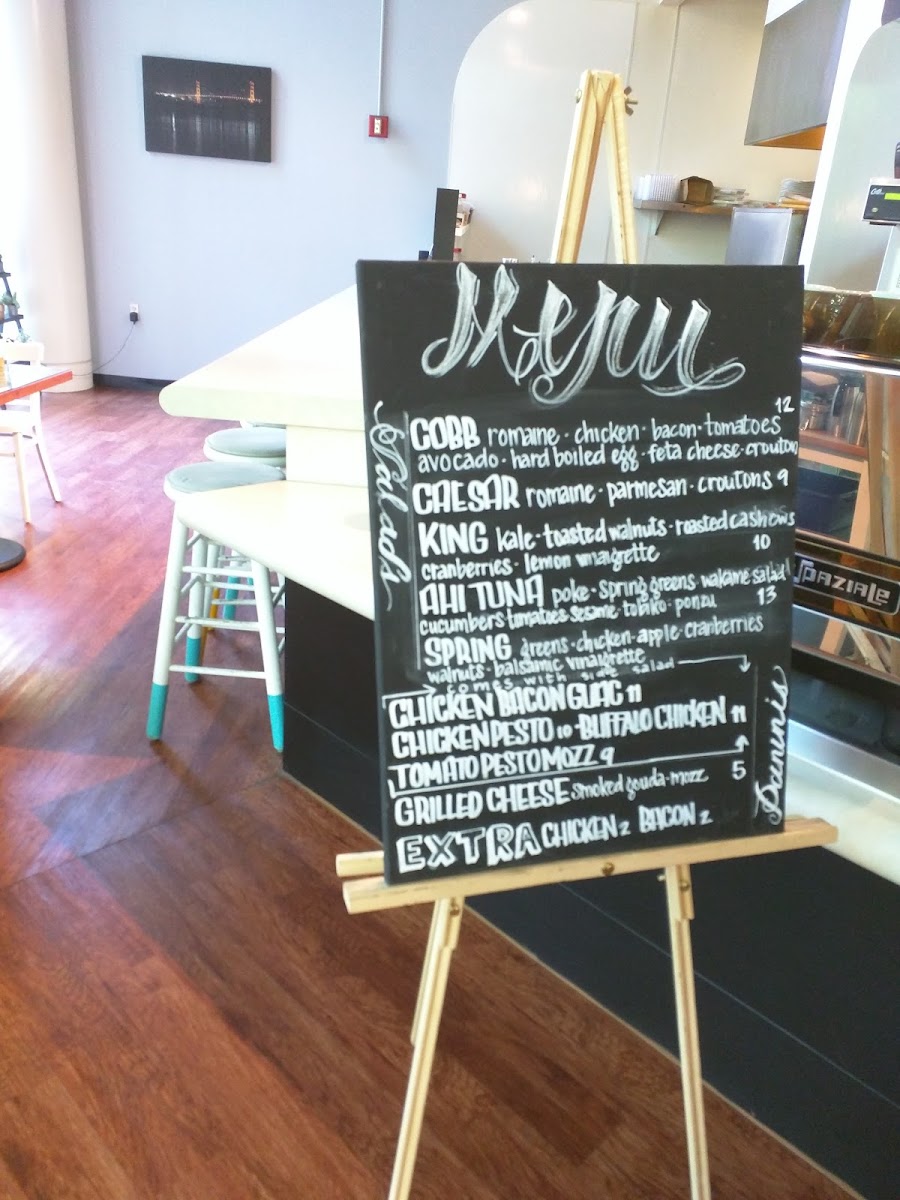 Menu
Salads
12
COBB romaine · chicken · bacon · tomatoes
avocado · hard boiled egg · feta cheese · crouton
CAESAR romaine · parmesan · croutons 9
KING kale · toasted walnuts · roasted cashews
cranberries · lemon vinaigrette 10
AHI TUNA poke · spring greens · wakame salad
cucumbers · tomatoes · sesame · tobiko · ponzu 13
SPRING greens · chicken · apple · cranberries
walnuts · balsamic vinaigrette
comes with side salad
CHICKEN BACON GUAC 11
CHICKEN PESTO 10 · BUFFALO CHICKEN 11
TOMATO PESTO MOZZ 9
GRILLED CHEESE smoked gouda · mozz 5
EXTRA CHICKEN 2 BACON 2
Paninis
SPAZIALE